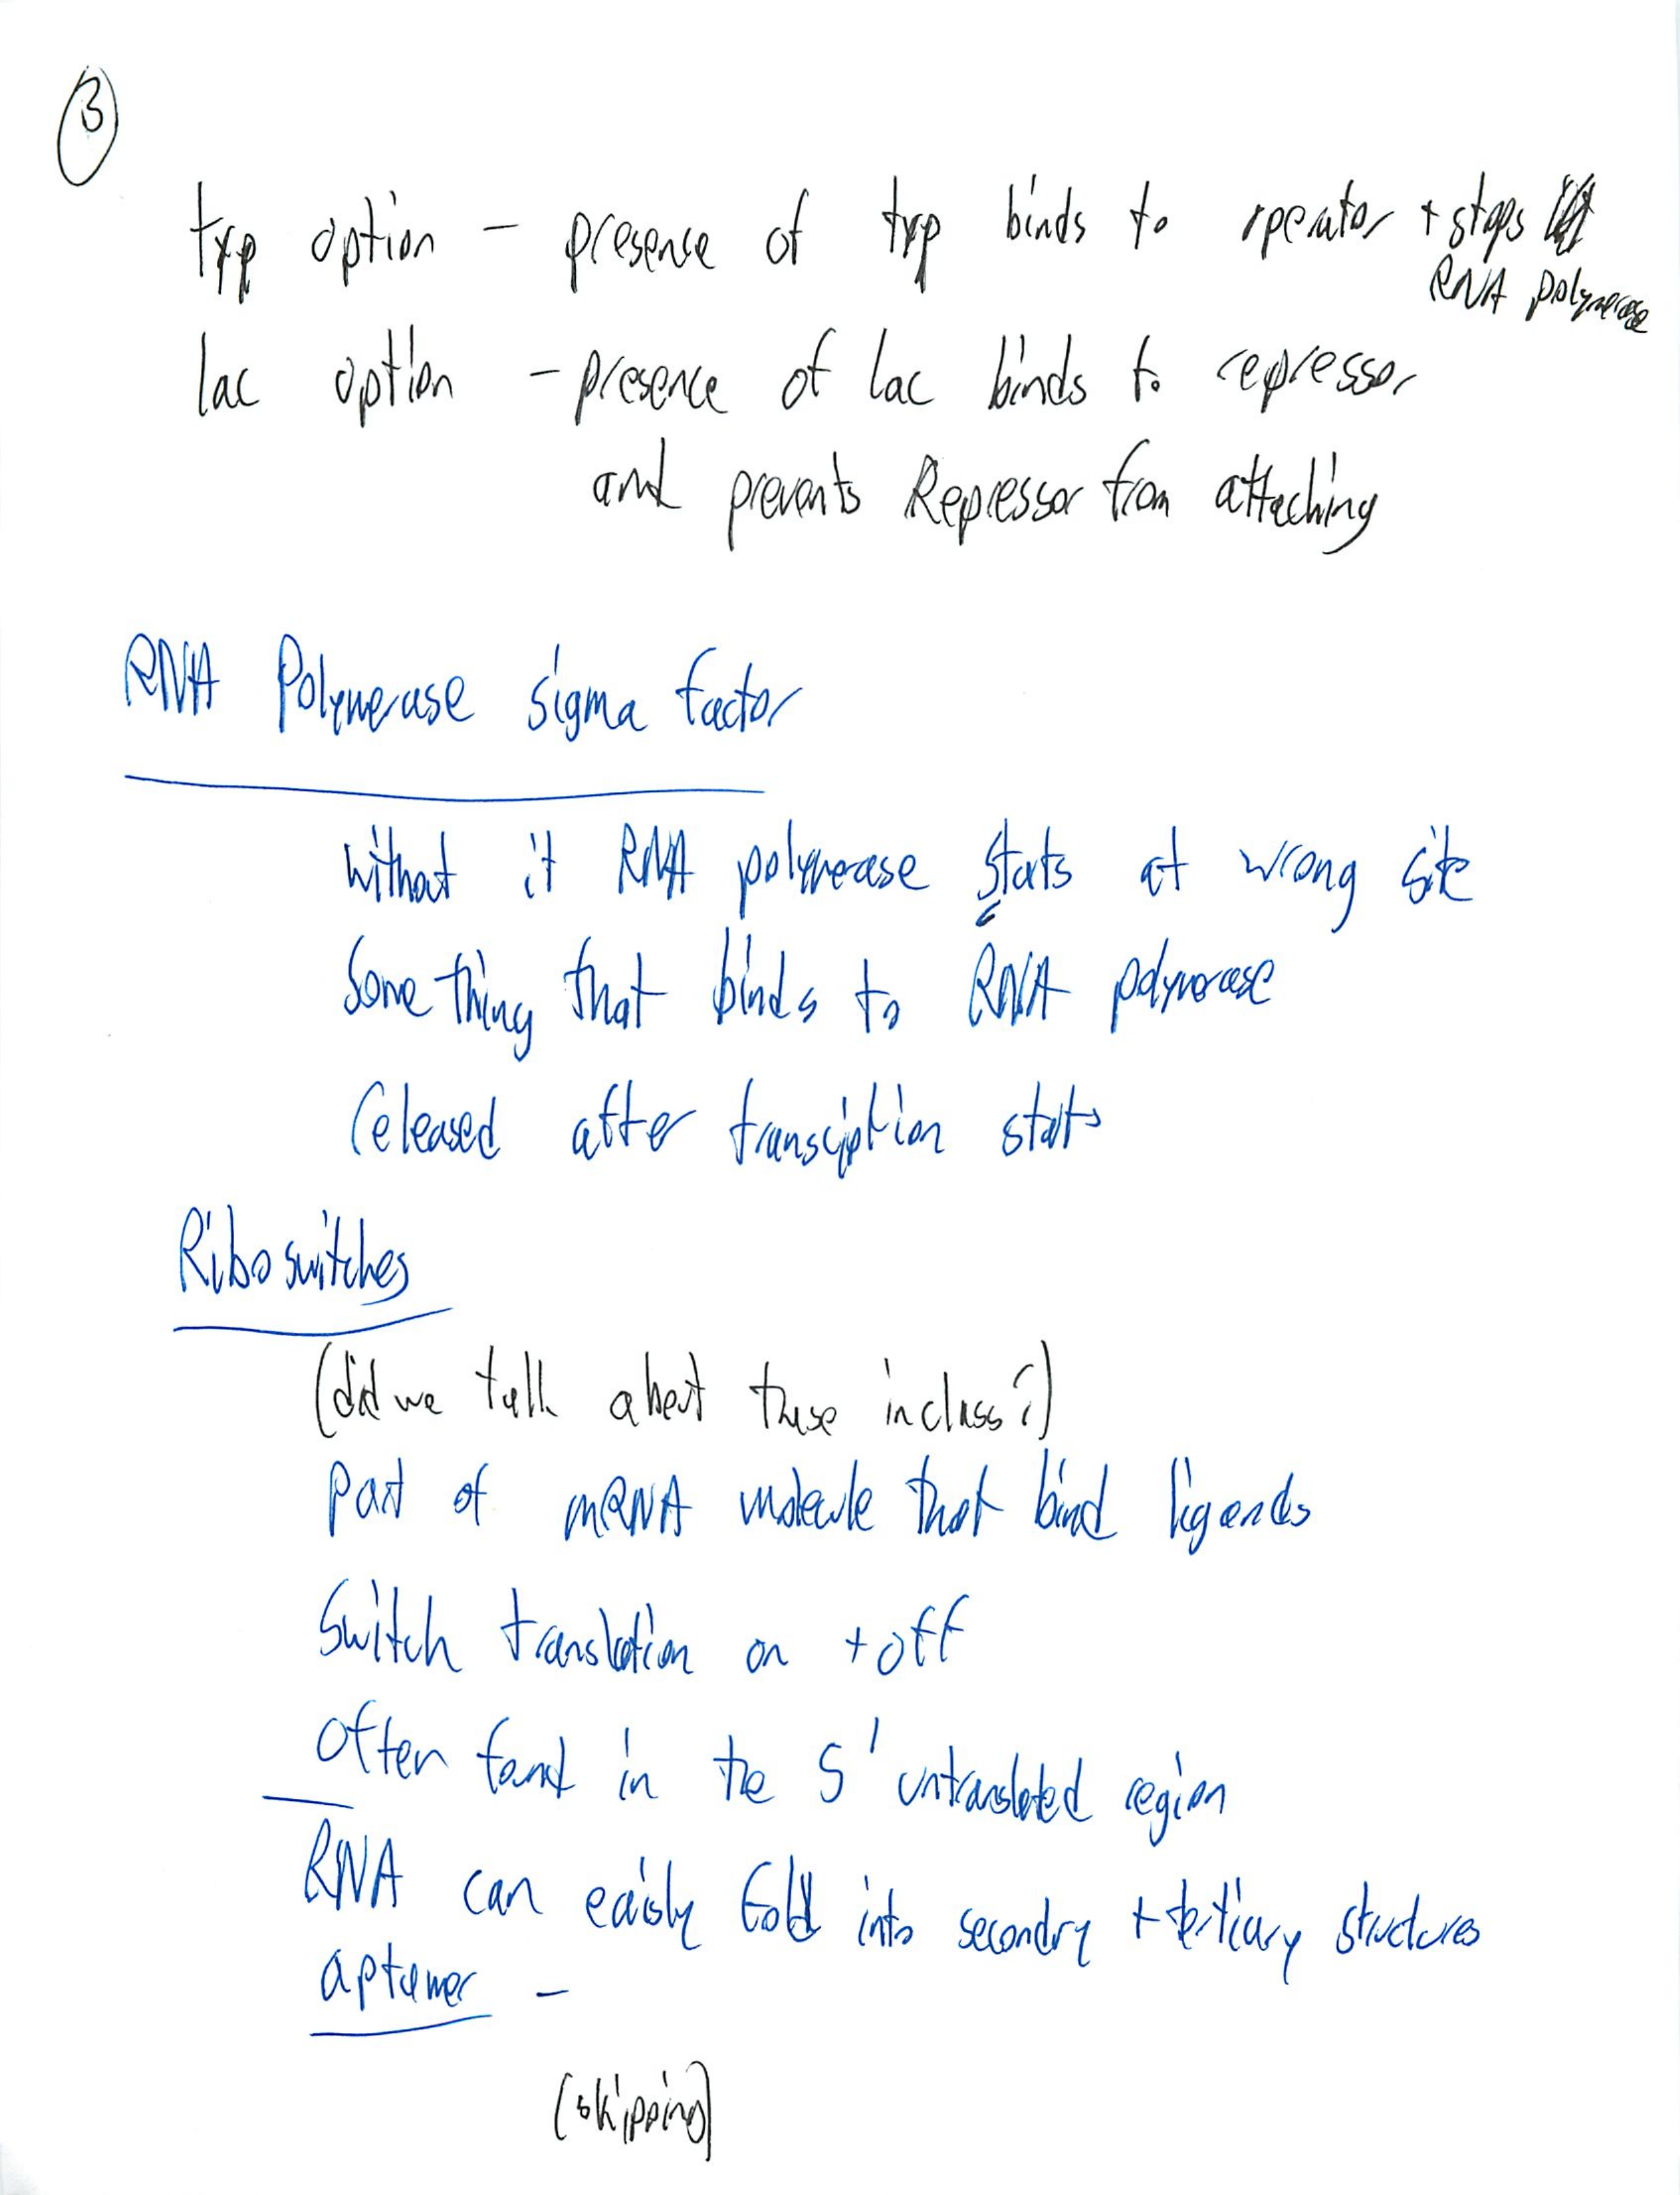 3
trp option - presence of trp binds to operator + stops
RNA polymerase
lac option - presence of lac binds to repressor
and prevents Repressor from attaching
RNA Polymerase sigma factor
without it RNA polymerase starts at wrong site
Something that binds to RNA polymerase
released after transciption starts
Riboswitches
(did we talk about these in class?)
Part of mRNA molecule that bind ligands
Switch translation on + off
Often found in the 5' untranslated region
RNA can easily fold into secondry + tertiary structures
aptamer -
(skipping)